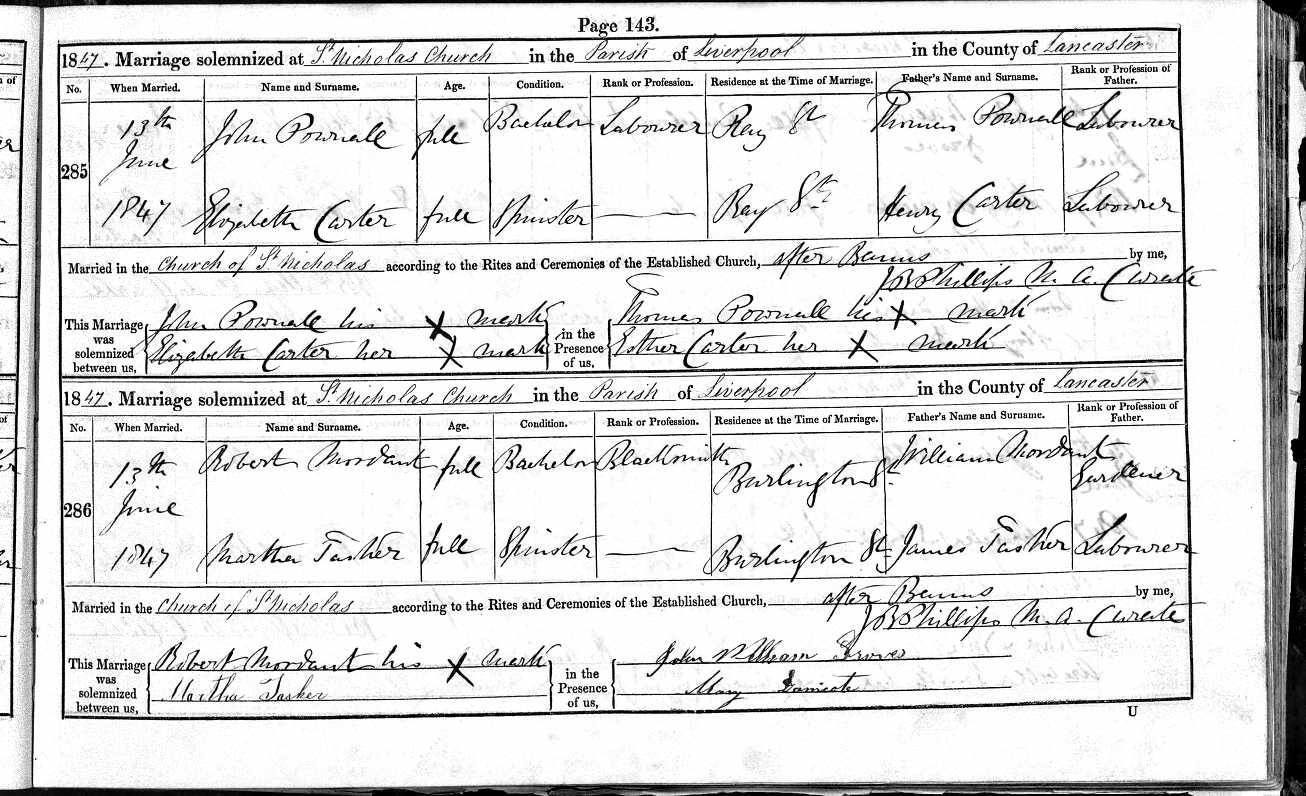 Page 143.
1847. Marriage solemnized at St Nicholas Church in the Parish of Liverpool in the County of Lancaster
No. When Married. Name and Surname. Age. Condition. Rank or Profession. Residence at the Time of Marriage. Father's Name and Surname. Rank or Profession of Father.
285 13th June 1847 John Pownall full Bachelor Labourer Ray St Thomas Pownall Labourer
Elizabeth Carter full Spinster Ray St Henry Carter Labourer
Married in the Church of St Nicholas according to the Rites and Ceremonies of the Established Church, after Banns by me,
J B Phillips M. A. Curate
This Marriage was solemnized between us, John Pownall his X mark in the Presence of us, Thomas Pownall his X mark
Elizabeth Carter her X mark Esther Carter her X mark
1847. Marriage solemnized at St Nicholas Church in the Parish of Liverpool in the County of Lancaster
No. When Married. Name and Surname. Age. Condition. Rank or Profession. Residence at the Time of Marriage. Father's Name and Surname. Rank or Profession of Father.
286 13th June 1847 Robert Mordant full Bachelor Blacksmith Burlington St William Mordant Gardener
Martha Tasker full Spinster Burlington St James Tasker Labourer
Married in the Church of St Nicholas according to the Rites and Ceremonies of the Established Church, after Banns by me,
J B Phillips M. A. Curate
This Marriage was solemnized between us, Robert Mordant his X mark in the Presence of us, John William
Martha Tasker Mary
U